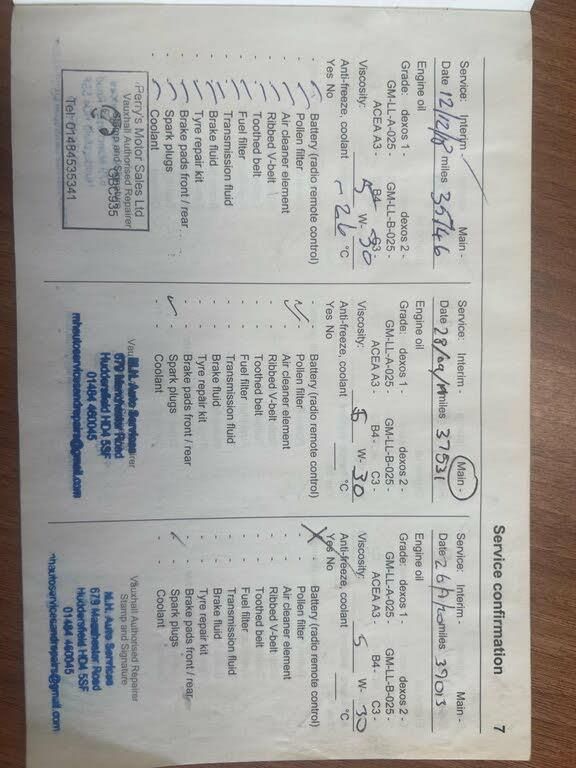 Service confirmation
7
Service: Interim - Main -
Date 12/12/18 miles 35146
Engine oil
Grade: dexos 1 - dexos 2 -
GM-LL-A-025 - GM-LL-B-025 -
ACEA A3 - B4 - C3 -
Viscosity: 5 W- 30
Anti-freeze, coolant - 26 °C
Yes No
- - Battery (radio remote control)
- - Pollen filter
- - Air cleaner element
- - Ribbed V-belt
- - Toothed belt
- - Fuel filter
- - Transmission fluid
- - Brake fluid
- - Tyre repair kit
- - Brake pads front / rear
- - Spark plugs
- - Coolant
Perry's Motor Sales Ltd
Vauxhall Authorised Repairer
Stamp and Signature
GBC935
Tel: 01484535341
Service: Interim - Main -
Date 28/09/19 miles 37531
Engine oil
Grade: dexos 1 - dexos 2 -
GM-LL-A-025 - GM-LL-B-025 -
ACEA A3 - B4 - C3 -
Viscosity: 5 W- 30
Anti-freeze, coolant °C
Yes No
- - Battery (radio remote control)
- - Pollen filter
- - Air cleaner element
- - Ribbed V-belt
- - Toothed belt
- - Fuel filter
- - Transmission fluid
- - Brake fluid
- - Tyre repair kit
- - Brake pads front / rear
- - Spark plugs
- - Coolant
M.H. Auto Services
679 Manchester Road
Huddersfield HD4 5SF
01484 460045
mhautoservicesandrepairs@gmail.com
Service: Interim - Main -
Date 26/9/20 miles 39013
Engine oil
Grade: dexos 1 - dexos 2 -
GM-LL-A-025 - GM-LL-B-025 -
ACEA A3 - B4 - C3 -
Viscosity: 5 W- 30
Anti-freeze, coolant °C
Yes No
- - Battery (radio remote control)
- - Pollen filter
- - Air cleaner element
- - Ribbed V-belt
- - Toothed belt
- - Fuel filter
- - Transmission fluid
- - Brake fluid
- - Tyre repair kit
- - Brake pads front / rear
- - Spark plugs
- - Coolant
Vauxhall Authorised Repairer
Stamp and Signature
M.H. Auto Services
679 Manchester Road
Huddersfield HD4 5SF
01484 460045
mhautoservicesandrepairs@gmail.com